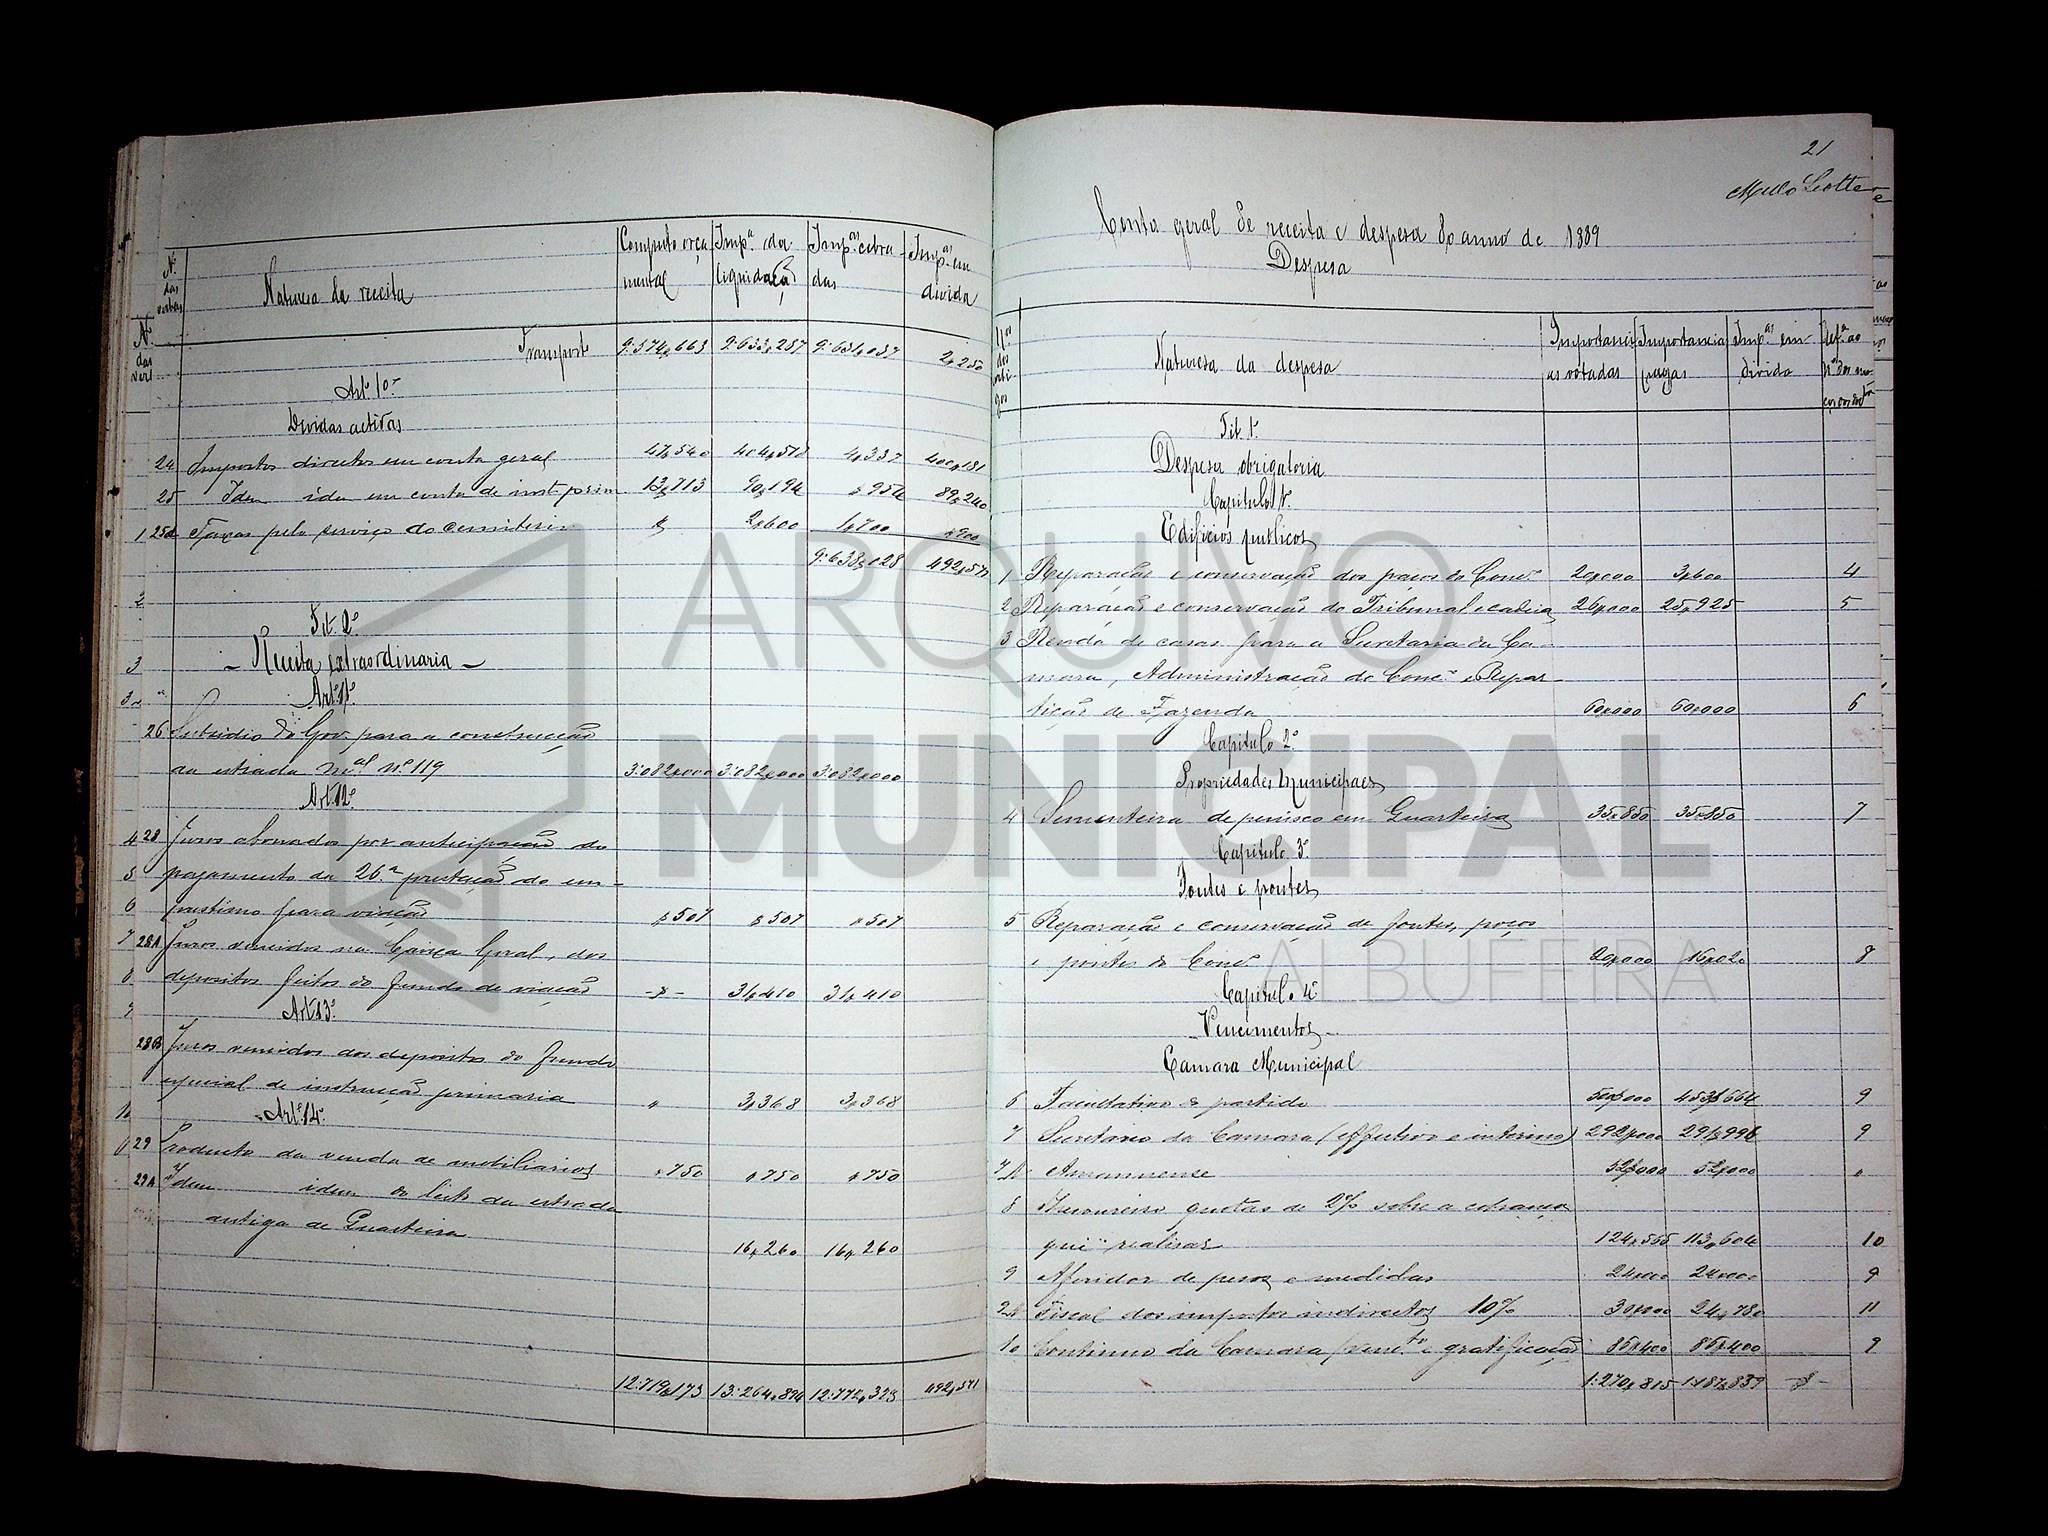 Nº das verbas
Naturesa da receita
Computo orçamental
Imp.ª da liquidação
Imp.as cobradas
Imp.as em divida
Transporte 9:374,663 9:633,287 9:631,037 2,250
Art.º 10º
Dividas activas
24 Impostos directos em conta geral 47,540 404,518 4,337 400,181
25 Idem idem em conta de inst. prim. 13,713 90,194 $954 89,240
25A Taxas pelo serviço do cemiterio $ 2,600 1,700 $900
9:638,028 492,571
Tit. 2º
- Receita extraordinaria -
Art.º 11º
26 Subsidio do Gov. para a construcção
da estrada m.al nº 119 3:082,000 3:082,000 3:082,000
Art. 12º
28 Juros abonados por anticipação do
pagamento da 26.ª prestação do em-
prestimo para viação $507 $507 $507
28A Juros vencidos na Caixa Geral, dos
depositos feitos do fundo de viação -$- 31,410 31,410
Art. 13º
28B Juros vencidos dos depositos do fundo
especial de instrucção primaria " 3,368 3,368
Art.º 14º
29 Producto da venda de mobiliarios $750 $750 $750
29A Idem idem do leito da estrada
antiga de Quarteira
16,260 16,260
12:719,173 13:264,894 12:772,323 492,571
21
Mello Leotte
Conta geral de receita e despesa do anno de 1889
Despesa
N.os dos artigos
Naturesa da despesa
Importancias votadas
Importancias pagas
Imp.as em divida
Tit. 1º
Despesa obrigatoria
Capitulo 1º
Edificios publicos
1 Reparação e conservação dos paços do Conc.º 20,000 3,600 4
2 Reparação e conservação do Tribunal e cadeia 26,000 25,925 5
3 Renda de casas para a Secretaria da Ca-
mara, Administração do Conc.º e Repar-
tição de Fazenda 60,000 60,000 6
Capitulo 2º
Propriedades Municipaes
4 Sementeira de penisco em Quarteira 35,850 35,850 7
Capitulo 3º
Fontes e pontes
5 Reparação e conservação de fontes, poços
e pontes do Conc.º 20,000 16,020 8
Capitulo 4º
- Vencimentos -
Camara Municipal
6 Facultativo do partido 500,000 453,664 9
7 Secretario da Camara (effectivo e interino) 292,000 291,996 9
7A Amanuense 52,000 52,000 "
8 Thesoureiro quotas de 2% sobre a cobrança
que realisar 124,565 113,604 10
9 Aferidor de pesos e medidas 24,000 24,000 9
Fiscal dos impostos indirectos 10% 30,000 24,780 11
10 Continuo da Camara (venc.to e gratificação) 86,400 86,400 9
1:270,815 1:187,839 -$-
ARQUIVO
MUNICIPAL
ALBUFEIRA